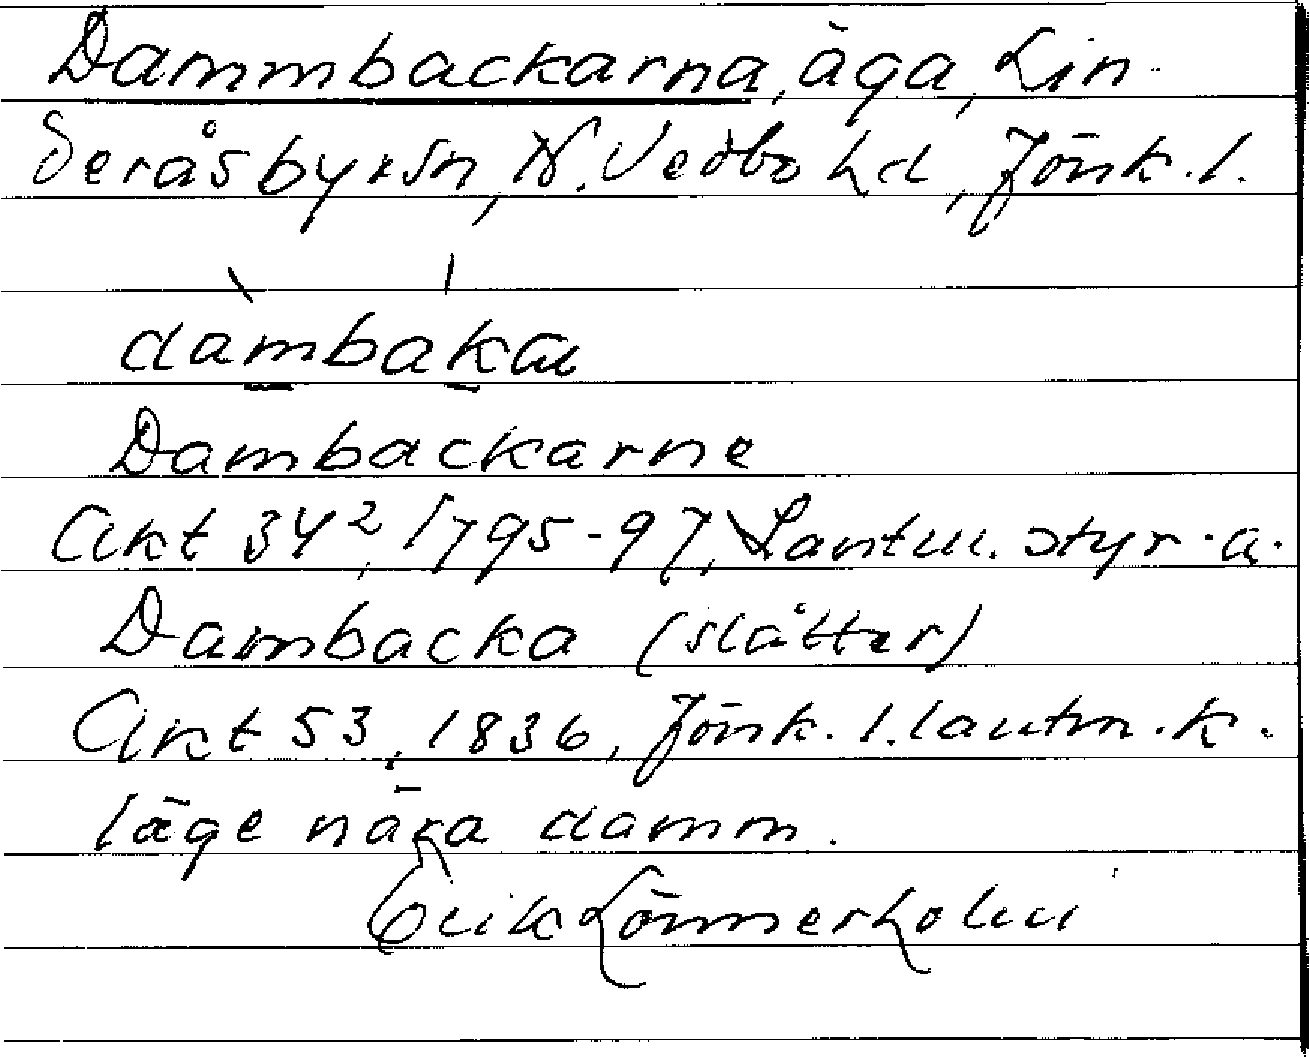 Dammbackarna, äga, Lin-
deråsbyrsn, N. Vedbo hd, Jönk. l.
dambaka
Dambackarne
Akt 34², 1795-97, Lantm. styr. a.
Dambacka (slåtter)
Akt 53, 1836, Jönk. l. lantm. k.
läge nära damm.
Erik Lönnerholm